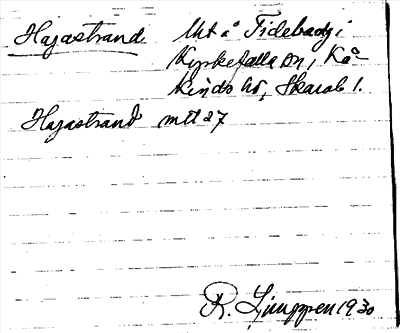 Hajastrand Utt å Fidebadg i
Kyrkefalla sn, Kå-
kinds hd, Skarab l.
Hajastrand mtl 27
R. Ljunggren 1930